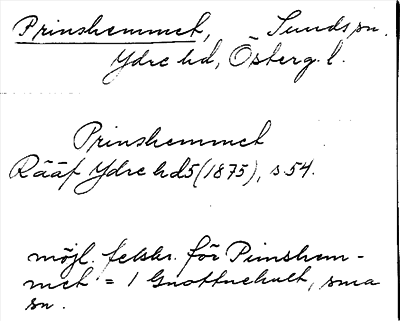 Prinshemmet, Sunds sn.
Ydre hd, Österg. l.
Prinshemmet
Rääf Ydre hd 5 (1875), s. 54.
möjl. felskr. för Pimshem-
met = 1 Gnottnehult, sma
sn.